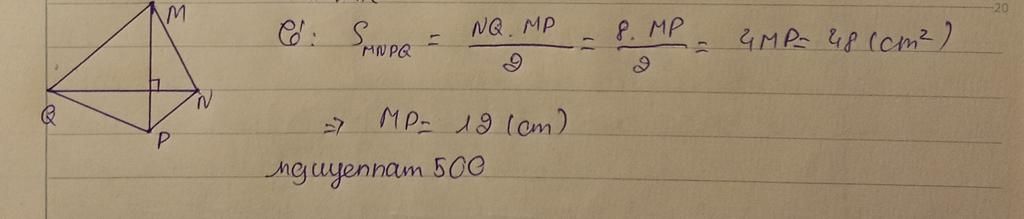 M
Có: S_MNPQ = NQ.MP/2 = 8.MP/2 = 4MP = 48 (cm²)
Q
N
P
⇒ MP = 12 (cm)
nguyennam 500
20